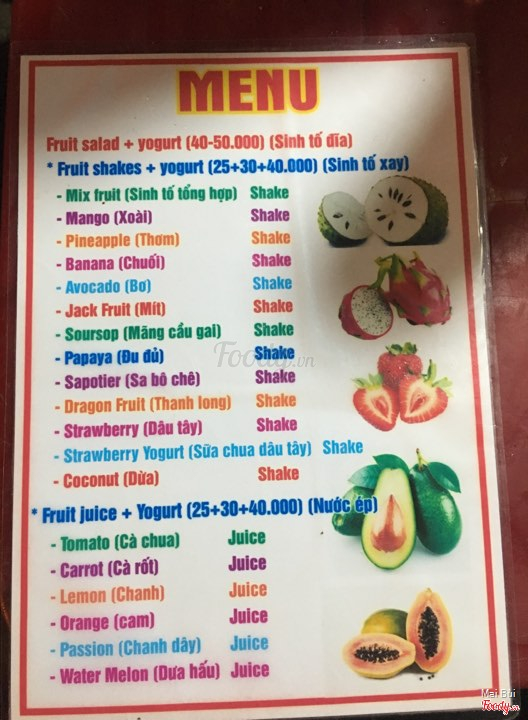 MENU
Fruit salad + yogurt (40-50.000) (Sinh tố đĩa)
* Fruit shakes + yogurt (25+30+40.000) (Sinh tố xay)
- Mix fruit (Sinh tố tổng hợp) Shake
- Mango (Xoài) Shake
- Pineapple (Thơm) Shake
- Banana (Chuối) Shake
- Avocado (Bơ) Shake
- Jack Fruit (Mít) Shake
- Soursop (Măng cầu gai) Shake
- Papaya (Đu đủ) Shake
- Sapotier (Sa bô chê) Shake
- Dragon Fruit (Thanh long) Shake
- Strawberry (Dâu tây) Shake
- Strawberry Yogurt (Sữa chua dâu tây) Shake
- Coconut (Dừa) Shake
* Fruit juice + Yogurt (25+30+40.000) (Nước ép)
- Tomato (Cà chua) Juice
- Carrot (Cà rốt) Juice
- Lemon (Chanh) Juice
- Orange (cam) Juice
- Passion (Chanh dây) Juice
- Water Melon (Dưa hấu) Juice
Foody.vn
Mai Bui
Foody.vn